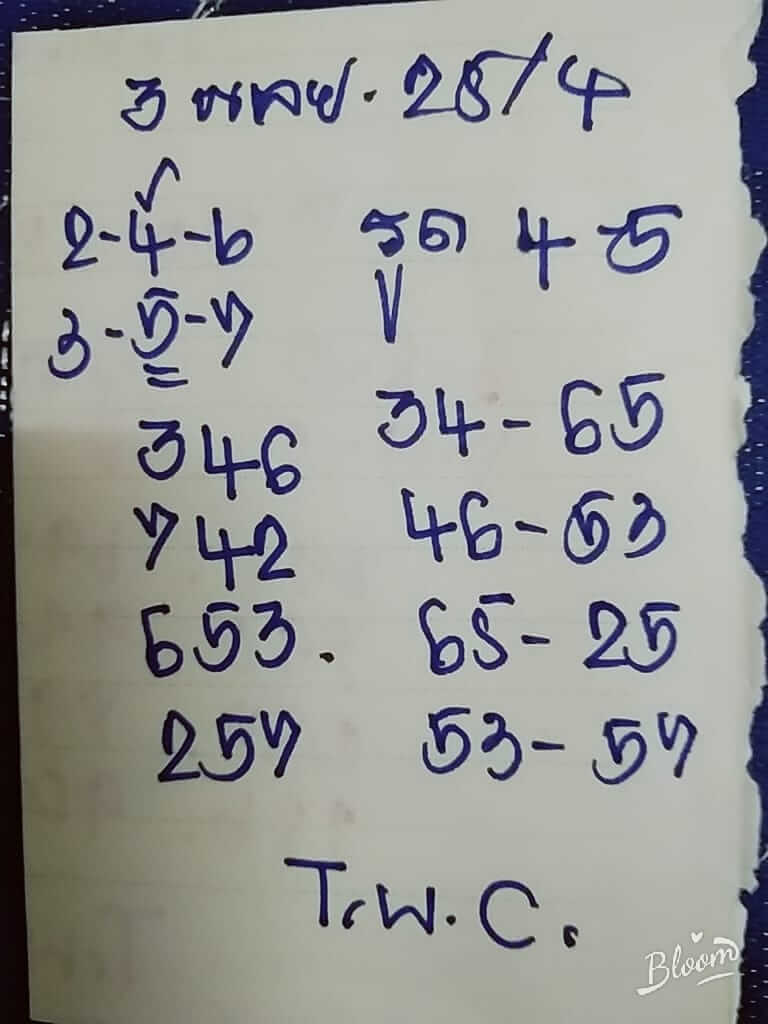 3 พลอย. 25/4
2-4-6
3-5-7
รูด 4-5
346
742
653.
257
34-65
46-53
65-25
53-57
T.พ.C.
Bloom